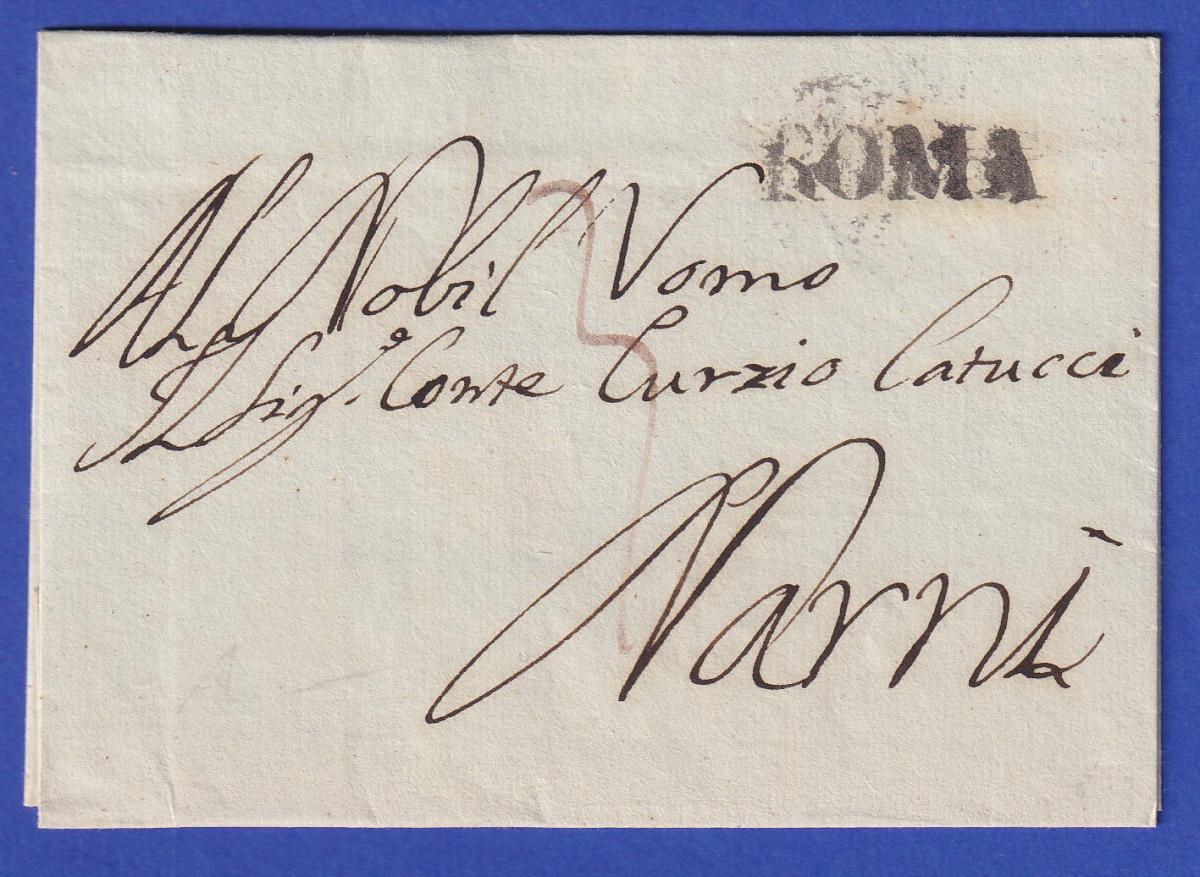 ROMA
Al Nobil Vomo
Il Sig.e Conte Curzio Catucci
3
Narni